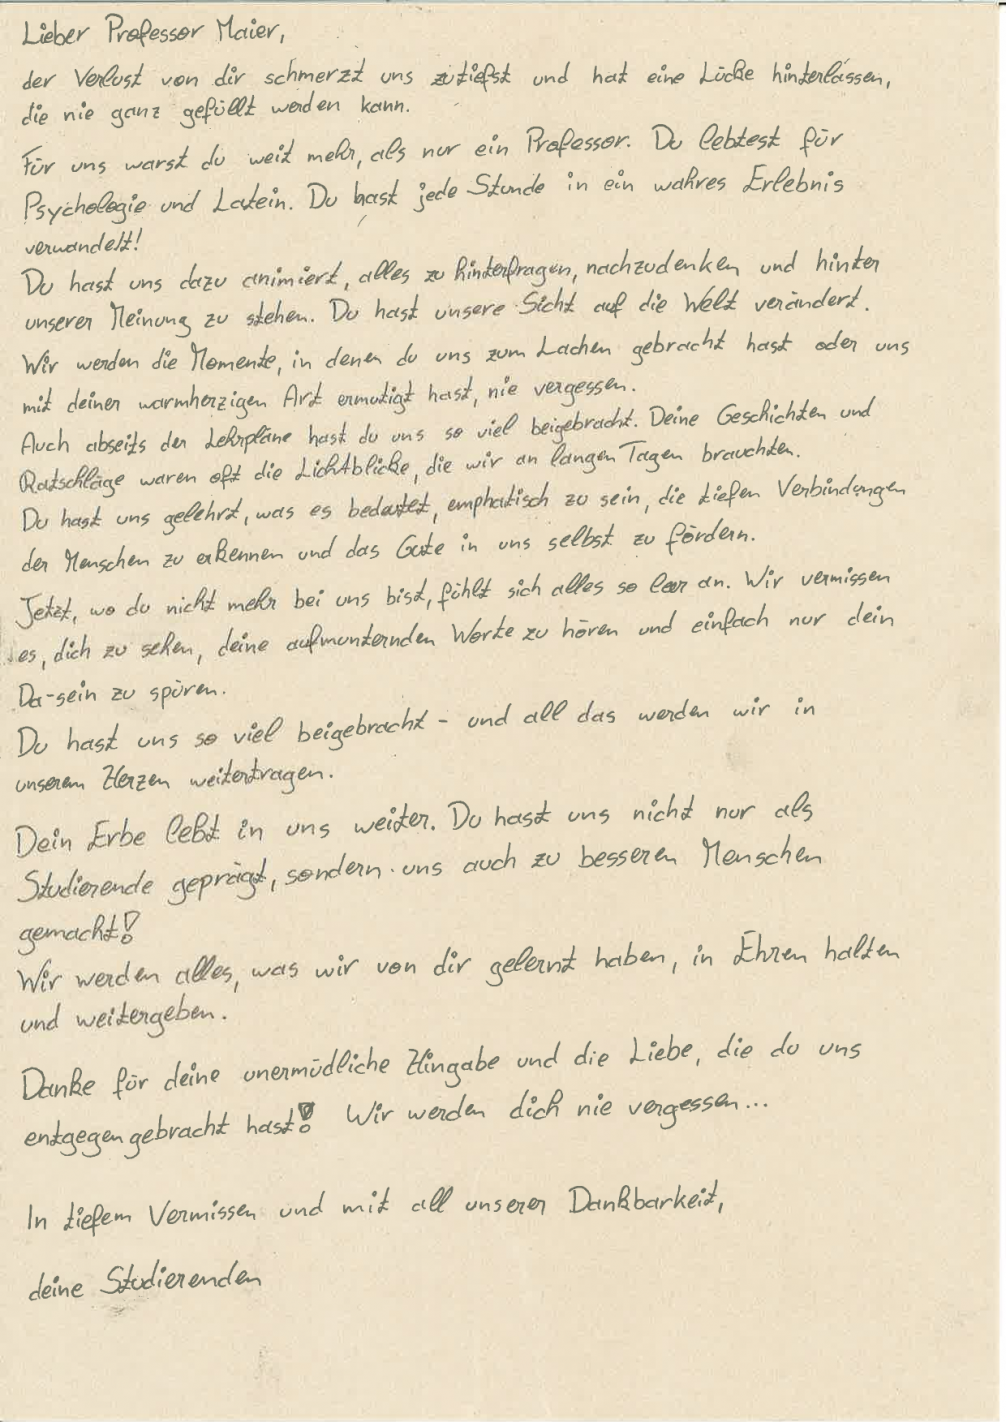 Lieber Professor Maier,
der Verlust von dir schmerzt uns zutiefst und hat eine Lücke hinterlassen,
die nie ganz gefüllt werden kann.
Für uns warst du weit mehr, als nur ein Professor. Du lebtest für
Psychologie und Latein. Du hast jede Stunde in ein wahres Erlebnis
verwandelt!
Du hast uns dazu animiert, alles zu hinterfragen, nachzudenken und hinter
unserer Meinung zu stehen. Du hast unsere Sicht auf die Welt verändert.
Wir werden die Momente, in denen du uns zum Lachen gebracht hast oder uns
mit deiner warmherzigen Art ermutigt hast, nie vergessen.
Auch abseits der Lehrpläne hast du uns so viel beigebracht. Deine Geschichten und
Ratschläge waren oft die Lichtblicke, die wir an langen Tagen brauchten.
Du hast uns gelehrt, was es bedeutet, emphatisch zu sein, die tiefen Verbindungen
der Menschen zu erkennen und das Gute in uns selbst zu fördern.
Jetzt, wo du nicht mehr bei uns bist, fühlt sich alles so leer an. Wir vermissen
es, dich zu sehen, deine aufmunternden Worte zu hören und einfach nur dein
Da-sein zu spüren.
Du hast uns so viel beigebracht - und all das werden wir in
unserem Herzen weitertragen.
Dein Erbe lebt in uns weiter. Du hast uns nicht nur als
Studierende geprägt, sondern uns auch zu besseren Menschen
gemacht!
Wir werden alles, was wir von dir gelernt haben, in Ehren halten
und weitergeben.
Danke für deine unermüdliche Hingabe und die Liebe, die du uns
entgegengebracht hast! Wir werden dich nie vergessen...
In tiefem Vermissen und mit all unserer Dankbarkeit,
deine Studierenden